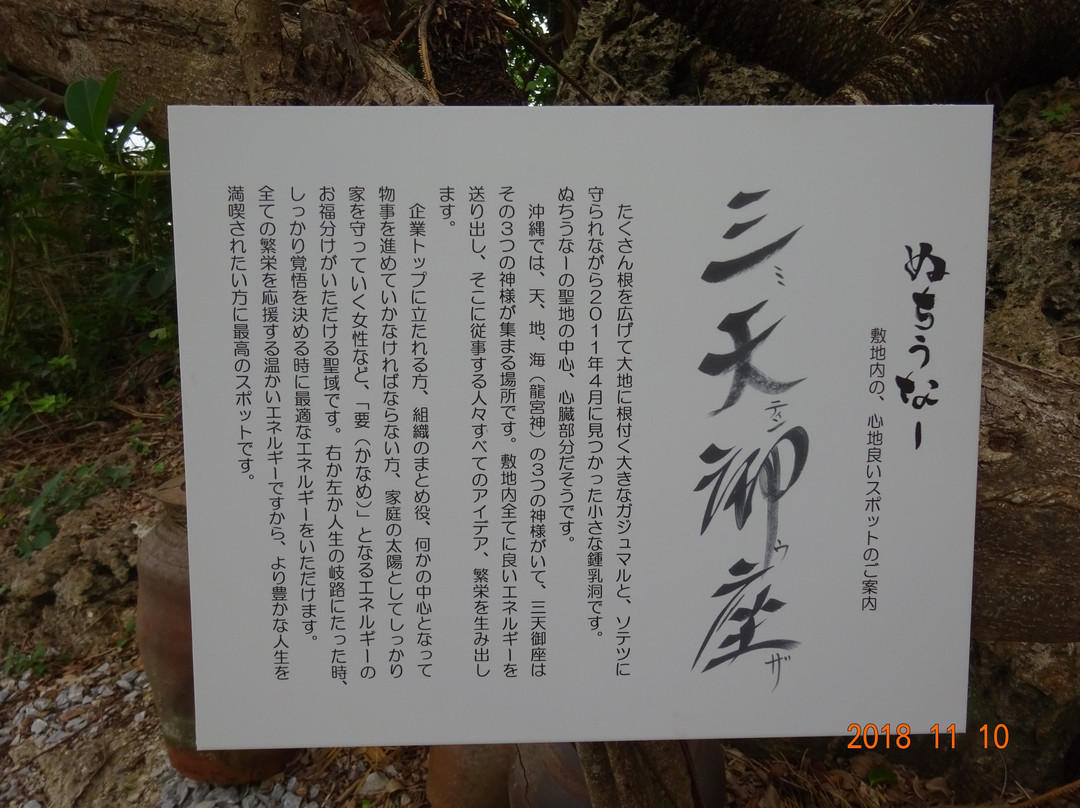 ぬちうなー
敷地内の、心地良いスポットのご案内
三天御座
ミ
ティン
ウ
ザ
たくさん根を広げて大地に根付く大きなガジュマルと、ソテツに
守られながら2011年4月に見つかった小さな鍾乳洞です。
ぬちうなーの聖地の中心、心臓部分だそうです。
沖縄では、天、地、海（龍宮神）の3つの神様がいて、三天御座は
その3つの神様が集まる場所です。敷地内全てに良いエネルギーを
送り出し、そこに従事する人々すべてのアイデア、繁栄を生み出し
ます。
企業トップに立たれる方、組織のまとめ役、何かの中心となって
物事を進めていかなければならない方、家庭の太陽としてしっかり
家を守っていく女性など、「要（かなめ）」となるエネルギーの
お福分けがいただける聖域です。右か左か人生の岐路にたった時、
しっかり覚悟を決める時に最適なエネルギーをいただけます。
全ての繁栄を応援する温かいエネルギーですから、より豊かな人生を
満喫されたい方に最高のスポットです。
2018 11 10